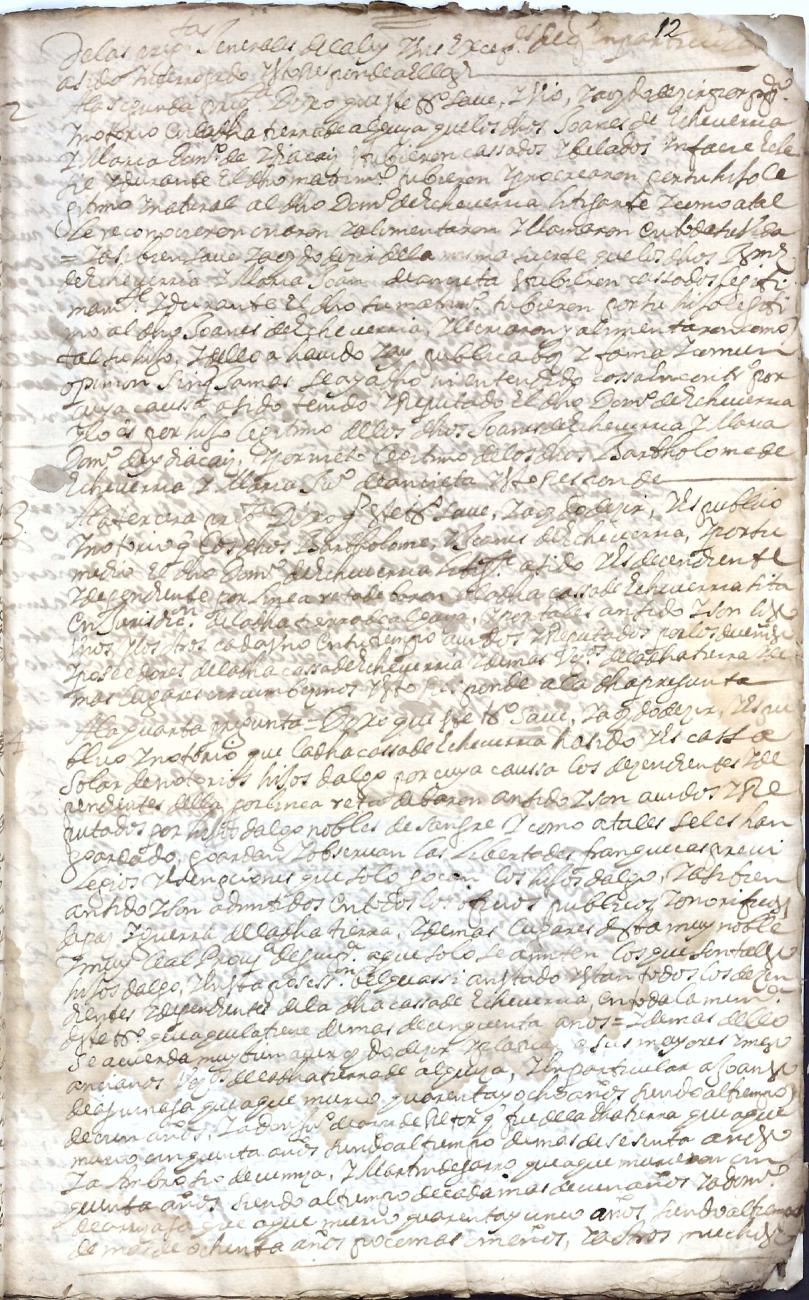 12
tas
De las preg Generales de la ley
a sido Interrogado Y esto Responde a ellas
2
A la segunda preg.ta Dixo que este tº save, Y vio, Y a oydo dezir por pu.co
Y notorio en la dha tierra de alquiza que los dhos Joanes de Echeverria
Y Maria Dom.s de Ydiacaiz estubieron cassados Y belados Infacie Ecle
sie Y durante El dho matrimº tubieron Y procrearon por su hijo le
gitimo Y natural al dho Domº de Echeverria litigante Y como a tal
le reconocieron criaron Y alimentaron Y llamaron en toda su Vida
= Y assi bien save Y a oydo dezir de la misma suerte que los dhos
de Echeverria Y Maria Joan de ancieta estubieron cassados legiti
mam.te Y durante El dho su matrimº tubieron por su hijo legiti
mo al dho Joanes de Echeverria, Y le criaron y alimentaron como
tal su hijo, Y dello a havido Y ay publica boz Y fama Y comun
opinion sin q Jamas se aya dho ni entendido cossa en contrº por
cuya caussa a sido tenido Y Reputado El dho Domº de Echeverria
por hijo legitimo de los dhos Joanes de Echeverria Y Maria
Domº de Ydiacaiz, Y por nieto legitimo de los dhos Bartholome de
Echeverria Y Maria de ancieta Y esto Responde
3
A la tercera preg.ta Dixo q este tº save, Y a oydo dezir, Y es publico
Y notorio q los dhos Bartholome, Y Joanes de Echeverria, Y por su
medio El dho Domº de Echeverria litig.te a sido Y es decendiente
Y dependiente por linea reta de baron de la dha cassa de Echeverria sita
en Jurisdicn de la dha tierra de alquiza, Y por tales an sido Y son
los Unos Y los otros cada Uno en su tiempo avidos Y Reputados por los dueños
Y poseedores de la dha cassa de Echeverria Y demas Vzºs de la dha tierra Y de
mas lugares circumbezinos Y esto Responde a la dha pregunta
4
A la quarta pregunta = Dixo que este tº save, Y a oydo dezir, Y es pu
blico Y notorio que la dha cassa de Echeverria ha sido Y es cassa
solar de notorios hijos dalgo por cuya caussa los dezendientes Y de
pendientes della por linea reta de baron an sido Y son avidos Y Re
putados por hijos dalgo nobles de sangre Y como a tales se les han
goardado, goardan Y observan las libertades franquezas previ
legios Y esenciones que solo gocan los hijos dalgo, Y assi bien
an sido Y son admitidos en todos los oficios publicos Y onorificos
de paz Y guerra de la dha tierra, Y demas lugares desta muy noble
Y muy leal Provy.a de guip.a a que solo se admiten los que son tales
hijos dalgo, Y en esta posess.on belquassi an stado Y estan todos los dezen
dientes Y dependientes de la dha cassa de Echeverria en toda la mem.a
deste tº que aquella tiene de mas de cinquenta años = Y demas dello
se acuerda muy bien aver oydo dezir Y platicar a sus mayores Y mas
ancianos Vzºs de la dha tierra de alquiza, Y en particular a Joanes
que a que murio quarenta y ocho años siendo al tiempo
de cien años, Y a don de Retor q fue de la dha tierra que a que
murio cinquenta años siendo al tiempo de mas de sesenta años
Y a Ambrosio de Y Martin de que a que murieron cin
quenta años siendo al tiempo de cada mas de cien años Y a Domº
que a que murio quarenta y cinco años siendo al tiempo
de mas de ochenta años poco mas o menos, Y a otros muchos